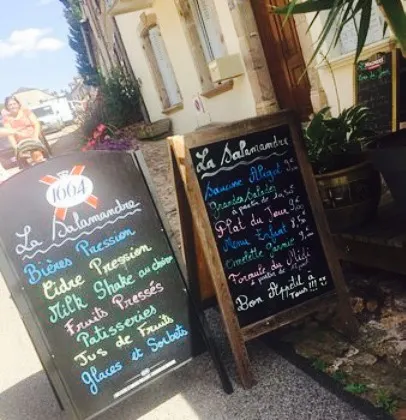 1664
La Salamandre
Bières Pression
Cidre Pression
Milk Shake au choix
Fruits Pressés
Patisseries
Jus de Fruits
Glaces et Sorbets
La Salamandre
Grandes Salades
à partir de
Plat du Jour
Menu Enfant
Omelette Garnie
Formule du Midi
à partir de
Bon Appétit à
Tous !!!